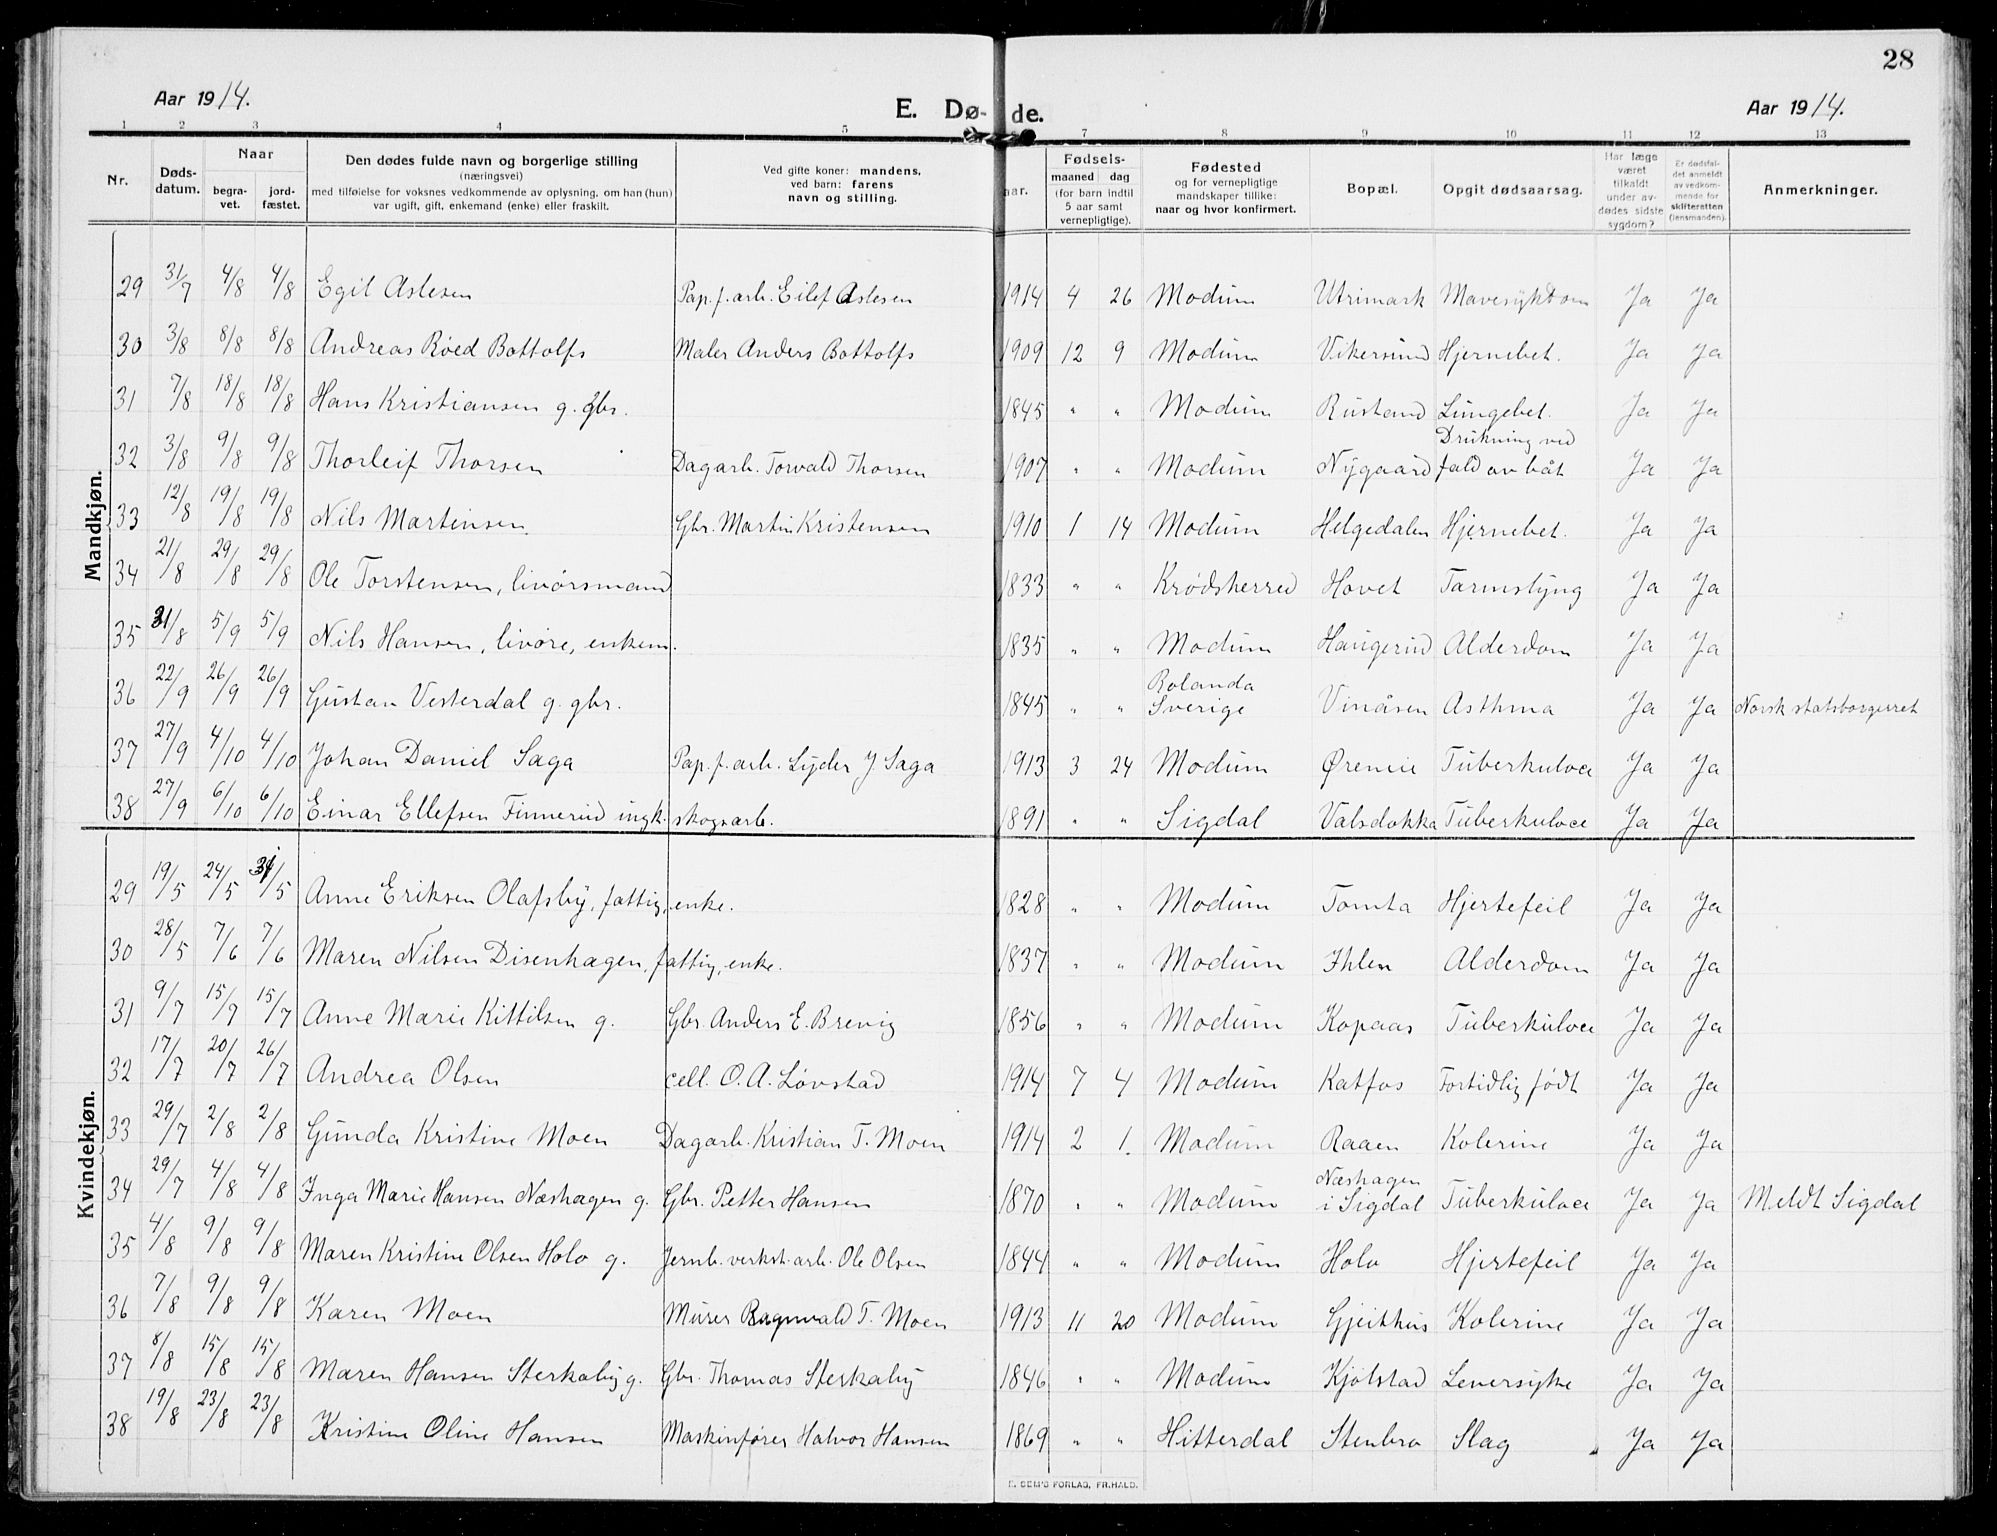 28
Aar 1914.
E. Dø- de.
Aar 1914.
1 2 3 4 5 7 8 9 10 11 12 13
Nr.
Døds-datum.
Naar
begra-vet.
jord-fæstet.
Den dødes fulde navn og borgerlige stilling
(næringsvei)
med tilføielse for voksnes vedkommende av oplysning, om han (hun)
var ugift, gift, enkemand (enke) eller fraskilt.
Ved gifte koner: mandens,
ved barn: farens
navn og stilling.
aar.
Fødsels-
maaned dag
(for barn indtil
5 aar samt
vernepligtige).
Fødested
og for vernepligtige
mandskaper tillike:
naar og hvor konfirmert.
Bopæl.
Opgit dødsaarsag.
Har læge
været
tilkaldt
under av-
dødes sidste
sygdom?
Er dødsfal-
det anmeldt
av vedkom-
mende for
skifteretten
(lensmanden).
Anmerkninger.
Mandkjøn.
29 31/7 4/8 4/8 Egil Aslesen Pap.f.arb. Eilef Aslesen 1914 4 26 Modum Utrimark Mavesykdom Ja Ja
30 3/8 8/8 8/8 Andreas Røed Bottolfs Maler Anders Bottolfs 1909 12 9 Modum Vikersund Hjernebet. Ja Ja
31 7/8 18/8 18/8 Hans Kristiansen g. gbr. 1845 " " Modum Rustand Lungebet. Ja Ja
32 3/8 9/8 9/8 Thorleif Thorsen Dagarb. Torvald Thorsen 1907 " " Modum Nygaard Drukning ved fald av båt Ja Ja
33 12/8 19/8 19/8 Nils Martinsen Gbr. Martin Kristensen 1910 1 14 Modum Helgedalen Hjernebet. Ja Ja
34 21/8 29/8 29/8 Ole Torstensen, livørsmand 1833 " " Krødsherred Hovet Tarmslyng Ja Ja
35 31/8 5/9 5/9 Nils Hansen, livøre, enkem. 1835 " " Modum Haugerud Alderdom Ja Ja
36 22/9 26/9 26/9 Gustav Vesterdal g. gbr. 1845 " " Bolanda Sverige Vinåsen Asthma Ja Ja Norsk statsborgerret
37 27/9 4/10 4/10 Johan Daniel Saga Pap.f.arb. Lyder J Saga 1913 3 24 Modum Øreneie Tuberkuloce Ja Ja
38 27/9 6/10 6/10 Einar Ellefsen Finnerud ungk. skogsarb. 1891 " " Sigdal Valsdokka Tuberkuloce Ja Ja
Kvindekjøn.
29 19/5 24/5 31/5 Anne Eriksen Olafsby, fattig, enke. 1828 " " Modum Tomta Hjertefeil Ja Ja
30 28/5 7/6 7/6 Maren Nilsen Disenhagen, fattig, enke. 1837 " " Modum Ihlen Alderdom Ja Ja
31 9/7 15/7 15/7 Anne Marie Kittilsen g. Gbr. Anders E. Brevig 1856 " " Modum Kopaas Tuberkuloce Ja Ja
32 17/7 20/7 26/7 Andrea Olsen cell. O. A. Løvstad 1914 7 4 Modum Katfos Fortidlig født Ja Ja
33 29/7 2/8 2/8 Gunda Kristine Moen Dagarb. Kristian T. Moen 1914 2 1. Modum Raaen Kolerine Ja Ja
34 29/7 4/8 4/8 Inga Marie Hansen Næshagen g. Gbr. Petter Hansen 1870 " " Modum Næshagen i Sigdal Tuberkuloce Ja Ja Meldt Sigdal
35 4/8 9/8 9/8 Maren Kristine Olsen Holo g. Jernb. verkst. arb. Ole Olsen 1844 " " Modum Holo Hjertefeil Ja Ja
36 7/8 9/8 9/8 Karen Moen Murer Ragnvald T. Moen 1913 11 20 Modum Gjeithus Kolerine Ja Ja
37 8/8 15/8 15/8 Maren Hansen Sterkaby g. Gbr. Thomas Sterkaby 1846 " " Modum Kjølstad Leversyke Ja Ja
38 19/8 23/8 23/8 Kristine Oline Hansen Maskinfører Halvor Hansen 1869 " " Hitterdal Stenbro Slag Ja Ja
E. SEM'S FORLAG, FR.HALD.